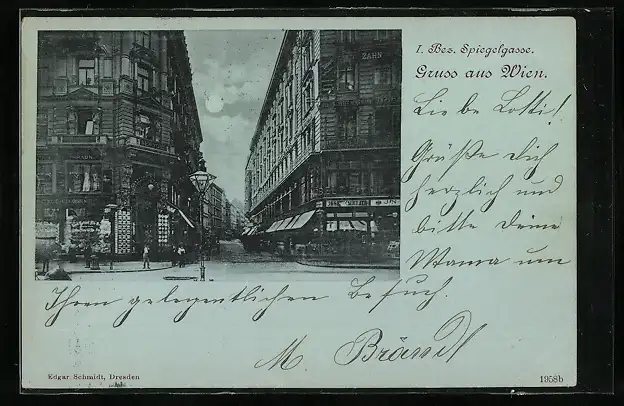 ZAHN
I. Bez. Spiegelgasse.
Gruss aus Wien.
Liebe Lotti!
Grüße Dich
herzlich und
bitte Deine
Mama um
Ihren gelegentlichen Besuch.
M. Brändl
Edgar Schmidt, Dresden
1958b